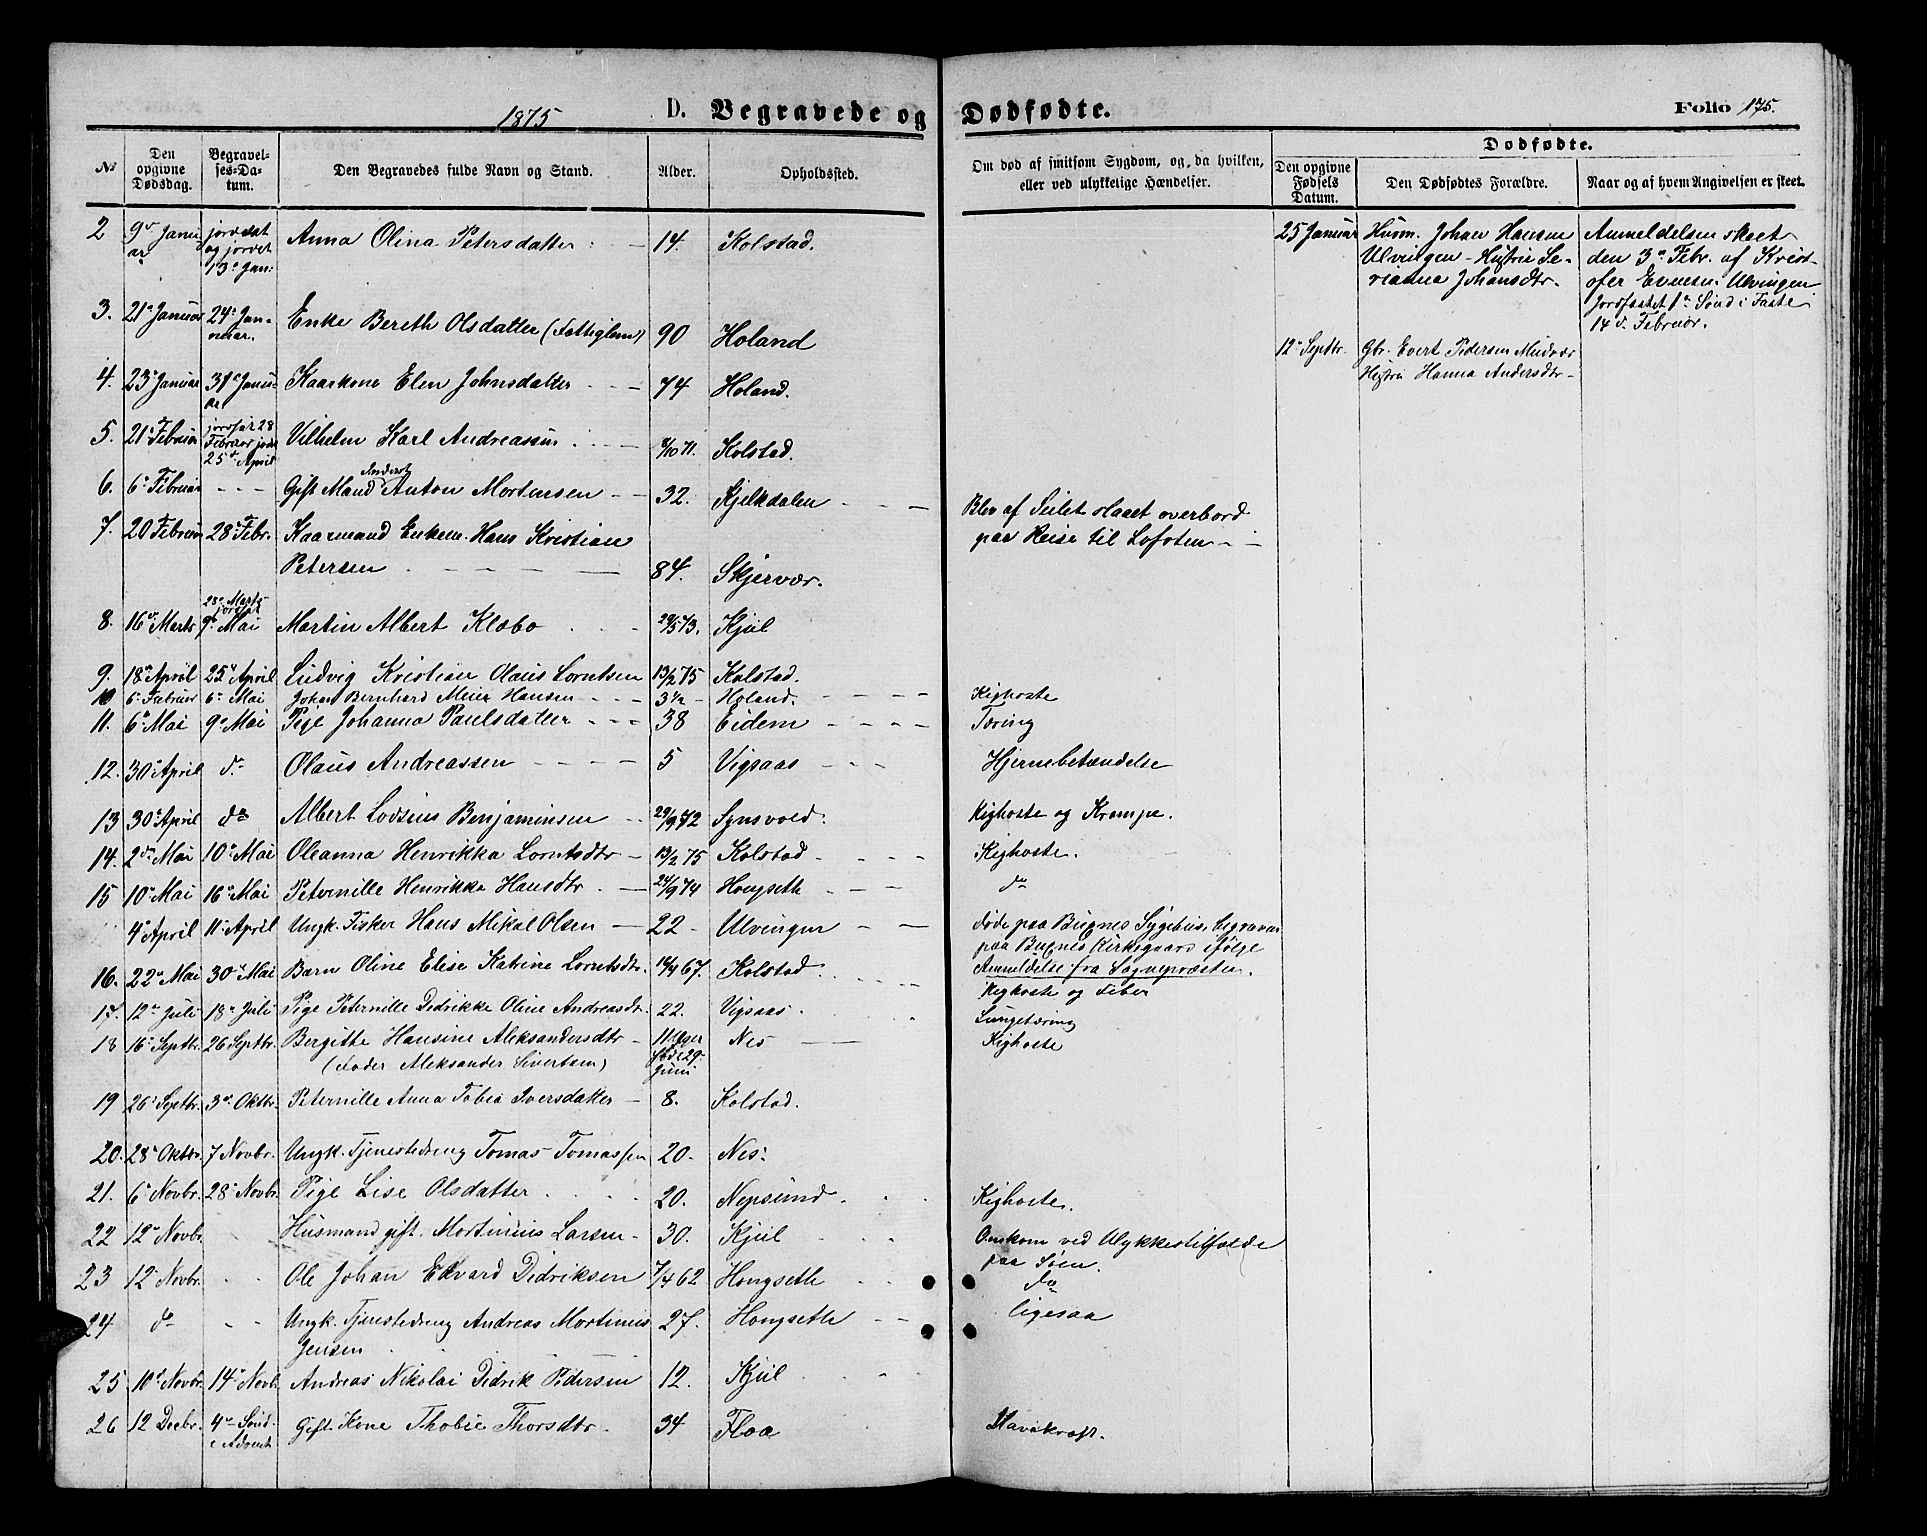 1875 D. Begravede og Dødfødte. Folio 175.
№ Den opgivne Dødsdag. Begravelses-Datum. Den Begravedes fulde Navn og Stand. Alder. Opholdsted. Om død af smitsom Sygdom, og, da hvilken, eller ved ulykkelige Hændelser. Dødfødte. Den opgivne Fødsels Datum. Den Dødfødtes Forældre. Naar og af hvem Angivelsen er skeet.
2 9de Januar 13de Jan: Anna Olina Petersdatter 14. Kolstad.
3. 21de Januar 24de Januar. Enke Bereth Olsdatter (Fattiglem) 90 Holand
4. 23de Januar 31de Januar Kaarkone Elen Johnsdatter 74 Holand.
5. 21de Februar 28 Februar 25de April Vilhelm Karl Andreassen 71. Kolstad.
6. 6te Februar - - - Gift Mand Anton Mortensen 32. Kjelkdalen Blev af Seilet slaaet overbord
paa Reise til Lofoten
7. 20 Februar 28de Febr. Kaarmand Enkem. Hans Kristian
Petersen 84. Skjervær.
8. 16de Marts 28de Marts jordfæst 9de Mai Martin Albert Klæbo 29/5 73. Kjul
9. 18de April 25de April Ludvig Kristian Olaus Lorntsen 13/2 75 Kolstad.
10 6te Februar 6te Mai Johan Bernhard Meier Hansen 3 1/2 Holand. Kighoste
11. 6te Mai 9de Mai Pige Johanna Paulsdatter 38 Eidem Tæring
12. 30te April do Olaus Andreassen 5 Vigsaas Hjernebetændelse
13 30te April do Albert Benjaminsen 29/9 72 Kighoste og Krampe.
14. 2den Mai 10de Mai Oleanna Henrikka Lorntsdtr 13/2 75 Kolstad Kighoste.
15 10de Mai 16de Mai Peternille Henrikka Hansdtr. 24/9 74 Hongseth do
4de April 11te April Ungk. Fisker Hans Mikal Olsen 22 Ulvingen døde paa Bugnes Sygehus, begraven
paa Bugnes Kirkegaard ifølge
Anmeldelse fra Sognepræsten.
16. 22de Mai 30te Mai Barn Oline Elise Katrine Lorntsdtr. 67. Kolstad. Kighoste og Feber
17. 12te Juli 18de Juli Pige Peternille Didrikke Oline Andreasdtr. 22. Vigsaas. Lungetæring
18 16de Septbr. 26 Septbr. Bergitte Hansine Aleksandersdtr 11 Uger Nes Kighoste
(Fader Aleksander Sivertsen) født 29de Juni
19 26de Septbr. 3de Oktbr. Peternille Anna Tobia Iversdatter 8. Kolstad.
20. 28de Oktbr. 7 Novbr. Ungk. Tjenestedreng Tomas Tomassen 20. Nes.
21. 6te Novbr. 28de Novbr. Pige Lise Olsdatter 20. Nepsund Kighoste.
22 12te Novbr. Husmand gift. Mortinius Larsen 30. Kjul Omkom ved Ulykkestilfælde
paa Søen.
23 12te Novbr. Ole Johan Edvard Didriksen 7/4 62 Hongseth do
24 do Ungk. Tjenestedreng Andreas Mortinus
Jensen 27. Hongseth ligesaa
25 10de Novbr. 14de Novb. Andreas Nikolai Didrik Pedersen 12. Kjul
26 12 Decbr. 4de Sønd. i Advent Gift Kone Thobie Thorsdtr. 34 Floa
25 Januar Husm. Johan Hansen
Ulvingen - Hustru Serianna Johansdtr.
Anmeldelsen skeet
den 3de Febr. af Kristofer Evensen Ulvingen
Jordfæstet 1te Sønd i Faste
14de Februar.
12te Septbr. Gbr. Evert Pedersen
Hustru Hanna Andersdtr